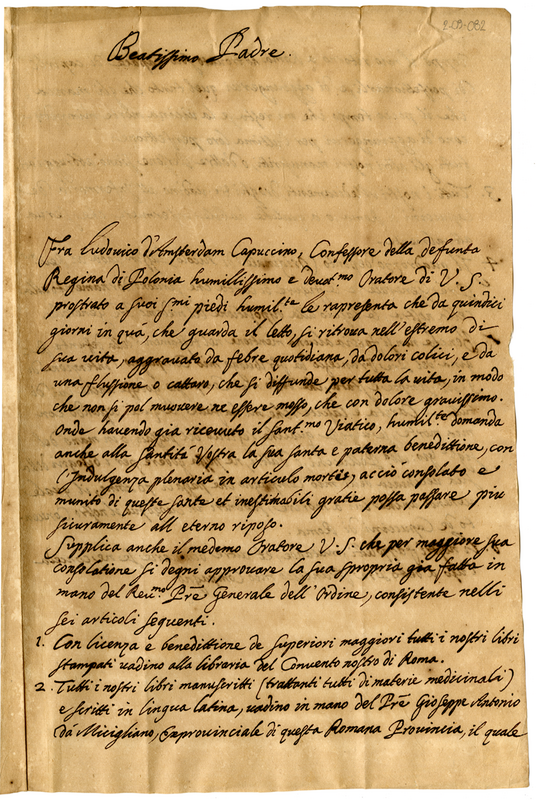 2-03-082
Beatissimo Padre.
Fra Ludovico d'Amsterdam Capuccino, Confessore della defunta
Regina di Polonia humilissimo e devot.mo Oratore di V. S.
prostrato a suoi s.mi piedi humil.te le rapresenta che da quindici
giorni in quà, che guarda il letto, si ritrova nell'estremo di
sua vita, aggravato da febre quotidiana, da dolori colici, e da
una flussione o cattaro, che si diffunde per tutta la vita, in modo
che non si pol muovere ne essere mosso, che con dolore gravissimo.
Onde havendo gia ricevuto il Sant.mo Viatico, humil.te domanda
anche alla Santità Vostra la sua santa e paterna benedittione, con
l'Indulgenza plenaria in articulo mortis, acciò consolato e
munito di queste sante et inestimabili gratie possa passare piu
sicuramente all'eterno riposo.
Supplica anche il medemo Oratore V. S. che per maggiore sua
consolatione si degni approvare la sua spropria già fatta in
mano del Reu.mo Prē Generale dell'Ordine, consistente nelli
sei articoli seguenti.
1. Con licenza e benedittione de superiori maggiori tutti i nostri libri
stampati vadino alla libraria del Convento nostro di Roma.
2. Tutti i nostri libri manuscritti (trattanti tutti di materie medicinali)
e scritti in lingua latina, vadino in mano del Prē Gioseppe Antonio
da Micigliano, Exprovinciale di questa Romana Provincia, il quale